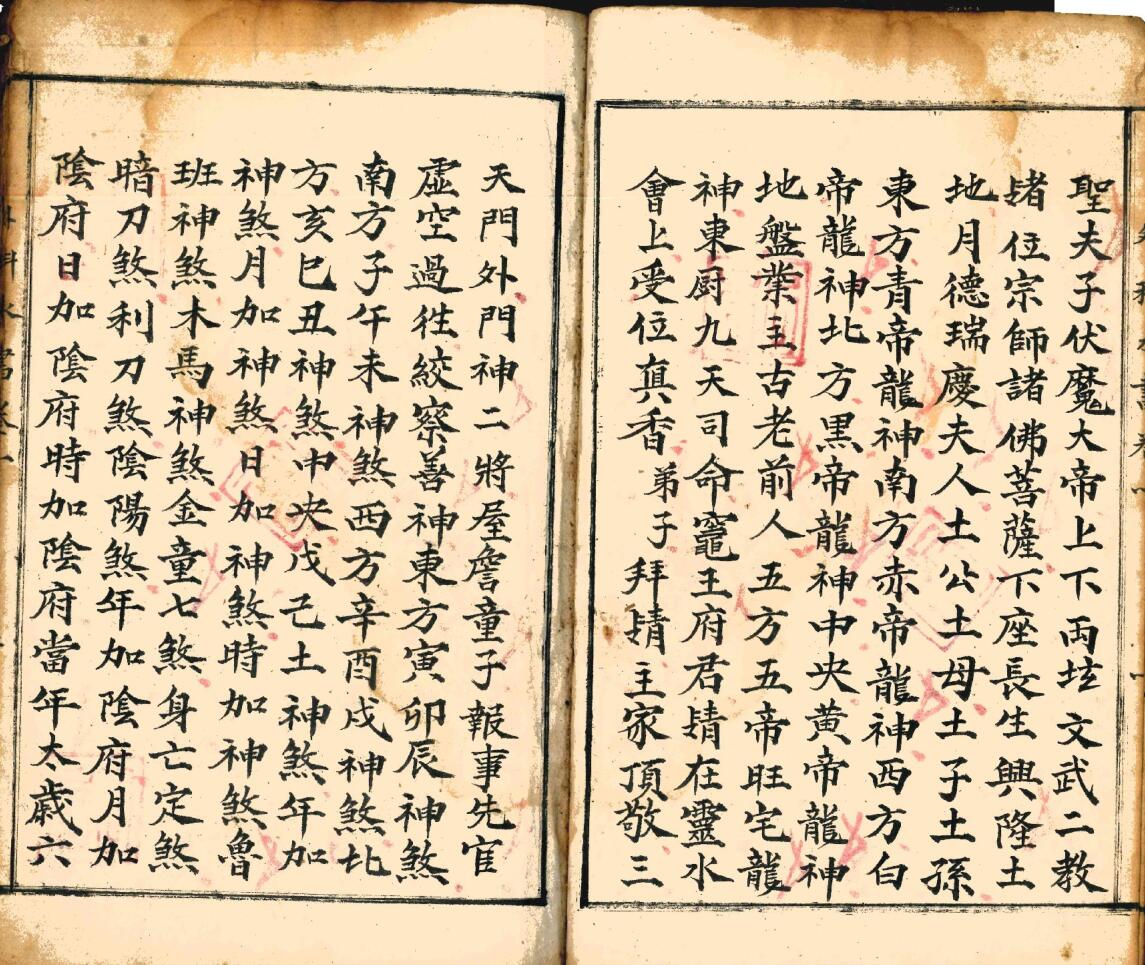 聖夫子伏魔大帝上下両坛文武二教
諸位宗師諸佛菩薩下座長生興隆土
地月德瑞慶夫人土公土母土子土孫
東方青帝龍神南方赤帝龍神西方白
帝龍神北方黒帝龍神中央黄帝龍神
地盤業主古老前人五方五帝旺宅龍
神東厨九天司命竈王府君請在靈水
會上受位真香弟子拜請主家頂敬三
天門外門神二將屋詹童子報事先官
虚空過徃絞察善神東方寅卯辰神煞
南方子午未神煞西方辛酉戌神煞北
方亥巳丑神煞中央戊己土神煞年加
神煞月加神煞日加神煞時加神煞魯
班神煞木馬神煞金童七煞身亡定煞
暗刀煞利刀煞陰陽煞年加陰府月加
陰府日加陰府時加陰府當年太歳六